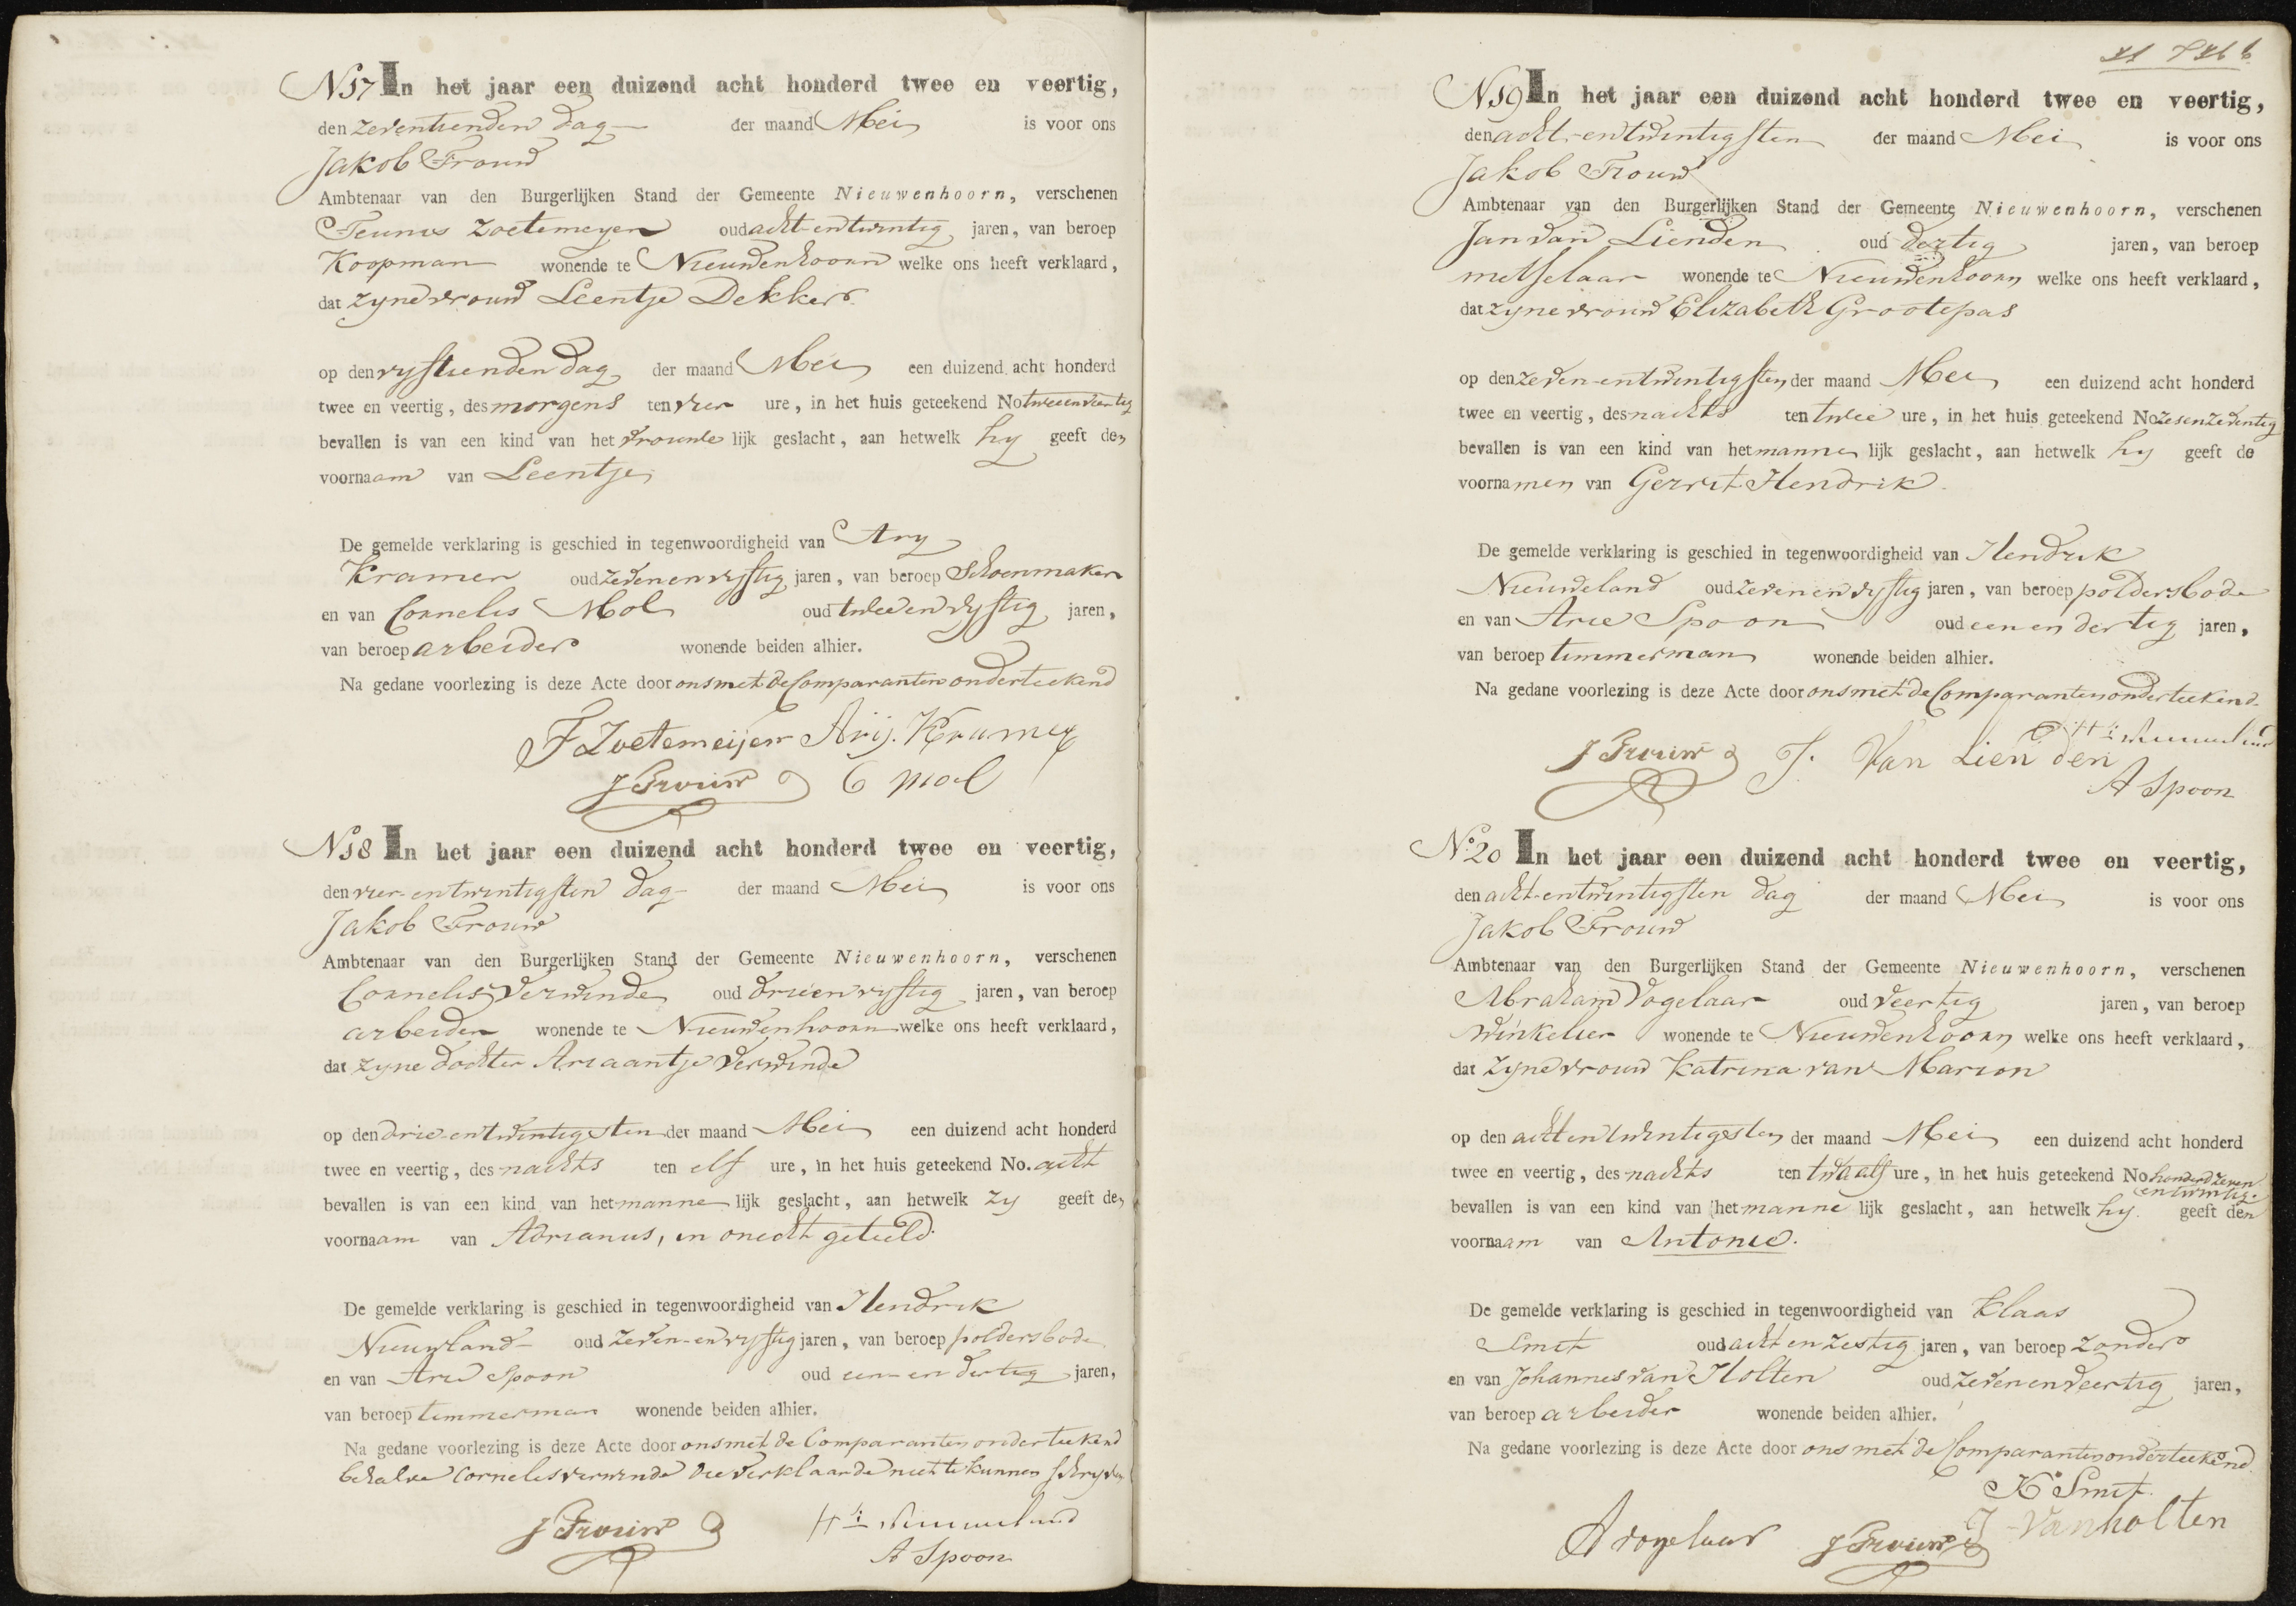 N17 In het jaar een duizend acht honderd twee en veertig,
den zeventienden dag der maand Mei is voor ons
Jakob Trouw
Ambtenaar van den Burgerlijken Stand der Gemeente Nieuwenhoorn, verschenen
Teunis Zoetemeyer oud acht-en twintig jaren, van beroep
Koopman wonende te Nieuwenhoorn welke ons heeft verklaard,
dat zyne vrouw Leentje Dekker
op den vyftienden dag der maand Mei een duizend acht honderd
twee en veertig, des morgens ten vier ure, in het huis geteekend No tweeenveertig
bevallen is van een kind van het vrouwe lijk geslacht, aan hetwelk hy geeft den
voornaam van Leentje
De gemelde verklaring is geschied in tegenwoordigheid van Ary
Kramer oud zevenenvyftig jaren, van beroep Schoenmaker
en van Cornelis Mol oud tweeenvyftig jaren,
van beroep arbeider wonende beiden alhier.
Na gedane voorlezing is deze Acte door ons met de Comparanten onderteekend
T Zoetemeijer Arij. Kramer
J Trouw C mol
N18 In het jaar een duizend acht honderd twee en veertig,
den vier-entwintigsten dag der maand Mei is voor ons
Jakob Trouw
Ambtenaar van den Burgerlijken Stand der Gemeente Nieuwenhoorn, verschenen
Cornelis Verwinde oud drieenvyftig jaren, van beroep
arbeider wonende te Nieuwenhoorn welke ons heeft verklaard,
dat zyne dochter Ariaantje Verwinde
op den drie-entwintigsten der maand Mei een duizend acht honderd
twee en veertig, des nachts ten elf ure, in het huis geteekend No. acht
bevallen is van een kind van het manne lijk geslacht, aan hetwelk zy geeft den
voornaam van Adrianus, in onecht geteeld.
De gemelde verklaring is geschied in tegenwoordigheid van Hendrik
Nieuwland oud zeven-envyftig jaren, van beroep poldersbode
en van Arie Spoon oud een-en dertig jaren,
van beroep timmerman wonende beiden alhier.
Na gedane voorlezing is deze Acte door ons met de Comparanten onderteekend
behalve Cornelis verwinde die Verklaarde niet te kunnen schryven
J Trouw Hk Nieuweland
A Spoon
N19 In het jaar een duizend acht honderd twee en veertig,
den acht-entwintigsten der maand Mei is voor ons
Jakob Trouw
Ambtenaar van den Burgerlijken Stand der Gemeente Nieuwenhoorn, verschenen
Jan van Lienden oud dertig jaren, van beroep
metselaar wonende te Nieuwenhoorn welke ons heeft verklaard,
dat zyne vrouw Elizabeth Grootepas
op den zeven-entwintigsten der maand Mei een duizend acht honderd
twee en veertig, des nachts ten twee ure, in het huis geteekend No zesenzeventig
bevallen is van een kind van het manne lijk geslacht, aan hetwelk hy geeft de
voornamen van Gerrit Hendrik.
De gemelde verklaring is geschied in tegenwoordigheid van Hendrik
Nieuweland oud zevenenvyftig jaren, van beroep poldersbode
en van Arie Spoon oud eenendertig jaren,
van beroep timmerman wonende beiden alhier.
Na gedane voorlezing is deze Acte door ons met de Comparanten onderteekend.
Hk Nieuweland
J Trouw J. Van Lienden
A Spoon
No 20 In het jaar een duizend acht honderd twee en veertig,
den acht-entwintigsten dag der maand Mei is voor ons
Jakob Trouw
Ambtenaar van den Burgerlijken Stand der Gemeente Nieuwenhoorn, verschenen
Abraham Vogelaar oud veertig jaren, van beroep
Winkelier wonende te Nieuwenhoorn welke ons heeft verklaard,
dat zyne vrouw Katrina van Marion
op den achtentwintigsten der maand Mei een duizend acht honderd
twee en veertig, des nachts ten twaalf ure, in het huis geteekend No honderd zeven
entwintig.
bevallen is van een kind van het manne lijk geslacht, aan hetwelk hy geeft den
voornaam van Antonie.
De gemelde verklaring is geschied in tegenwoordigheid van Klaas
Smit oud acht enzestig jaren, van beroep zonder
en van Johannes van Holten oud zevenenveertig jaren,
van beroep arbeider wonende beiden alhier.
Na gedane voorlezing is deze Acte door ons met de Comparanten onderteekend
Ks Smit.
J Van holten
A vogelaar J Trouw